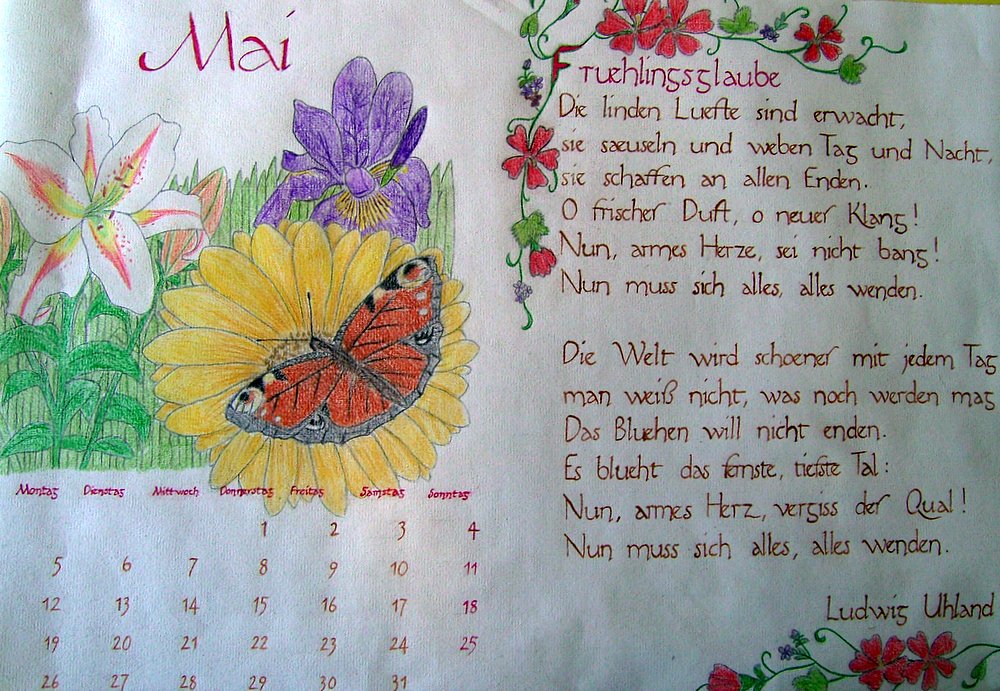 Mai
Montag Dienstag Mittwoch Donnerstag Freitag Samstag Sonntag
1 2 3 4
5 6 7 8 9 10 11
12 13 14 15 16 17 18
19 20 21 22 23 24 25
26 27 28 29 30 31
Fruehlingsglaube
Die linden Luefte sind erwacht,
sie saeuseln und weben Tag und Nacht,
sie schaffen an allen Enden.
O frischer Duft, o neuer Klang!
Nun, armes Herze, sei nicht bang!
Nun muss sich alles, alles wenden.
Die Welt wird schoener mit jedem Tag
man weiß nicht, was noch werden mag
Das Bluehen will nicht enden.
Es blueht das fernste, tiefste Tal:
Nun, armes Herz, vergiss der Qual!
Nun muss sich alles, alles wenden.
Ludwig Uhland